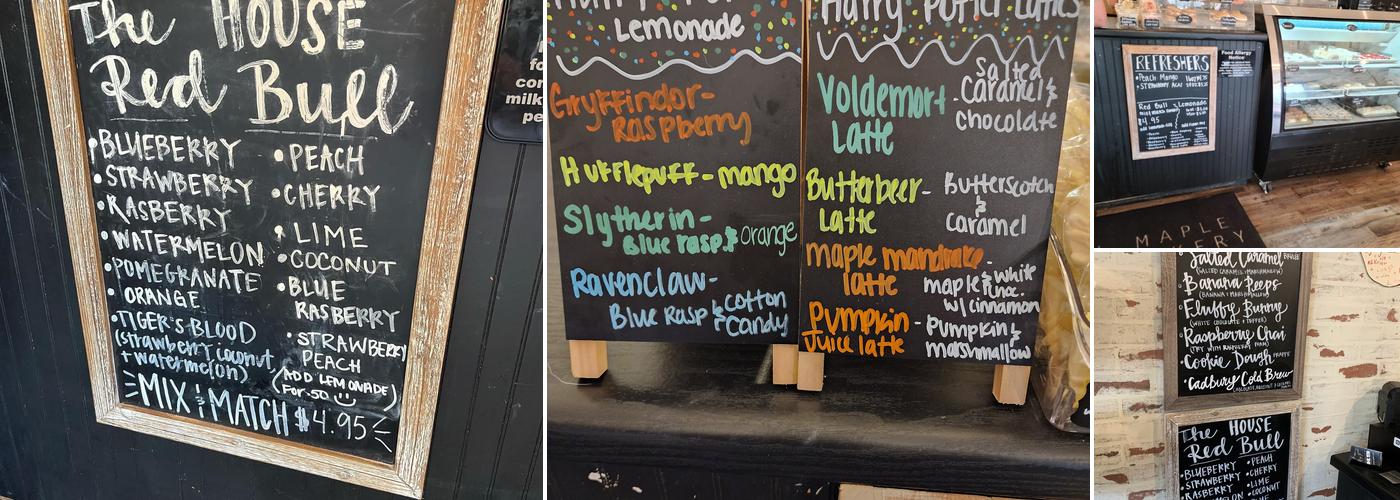 The HOUSE
Red Bull
•BLUEBERRY
•STRAWBERRY
•RASBERRY
•WATERMELON
•POMEGRANATE
•ORANGE
•TIGER'S BLOOD
(strawberry, coconut,
+ watermelon)
•PEACH
•CHERRY
•LIME
•COCONUT
•BLUE
RASBERRY
•STRAWBERRY
PEACH
(ADD LEMONADE)
FOR .50
MIX & MATCH $4.95
Lemonade
Gryffindor-
Raspberry
Hufflepuff - mango
Slytherin -
Blue rasp & orange
Ravenclaw-
Blue Rasp & cotton
candy
Harry Potter Lattes
Voldemort
Latte
- Salted
Caramel &
chocolate
Butterbeer-
Latte
Butterscotch
&
Caramel
maple mandrake-
latte
maple & white
w/cinnamon
Pumpkin -
Juice latte
Pumpkin &
marshmallow
REFRESHERS
•Peach Mango
•STRAWBERRY ACAI
Red Bull
Lemonade
$4.95
Food Allergy
Notice
MAPLE
Salted Caramel
(SALTED CARAMEL + MARSHMALLOW)
•Banana Peeps
(BANANA + MARSHMALLOW)
•Fluffy Bunny
(WHITE CHOCOLATE + TOFFEE)
•Raspberry Chai
(TRY WITH RASPBERRY FOAM)
•Cookie Dough FRAPPE
•Cadbury Cold Brew
The HOUSE
Red Bull
•BLUEBERRY
•STRAWBERRY
•RASBERRY
•PEACH
•CHERRY
•LIME
•COCONUT